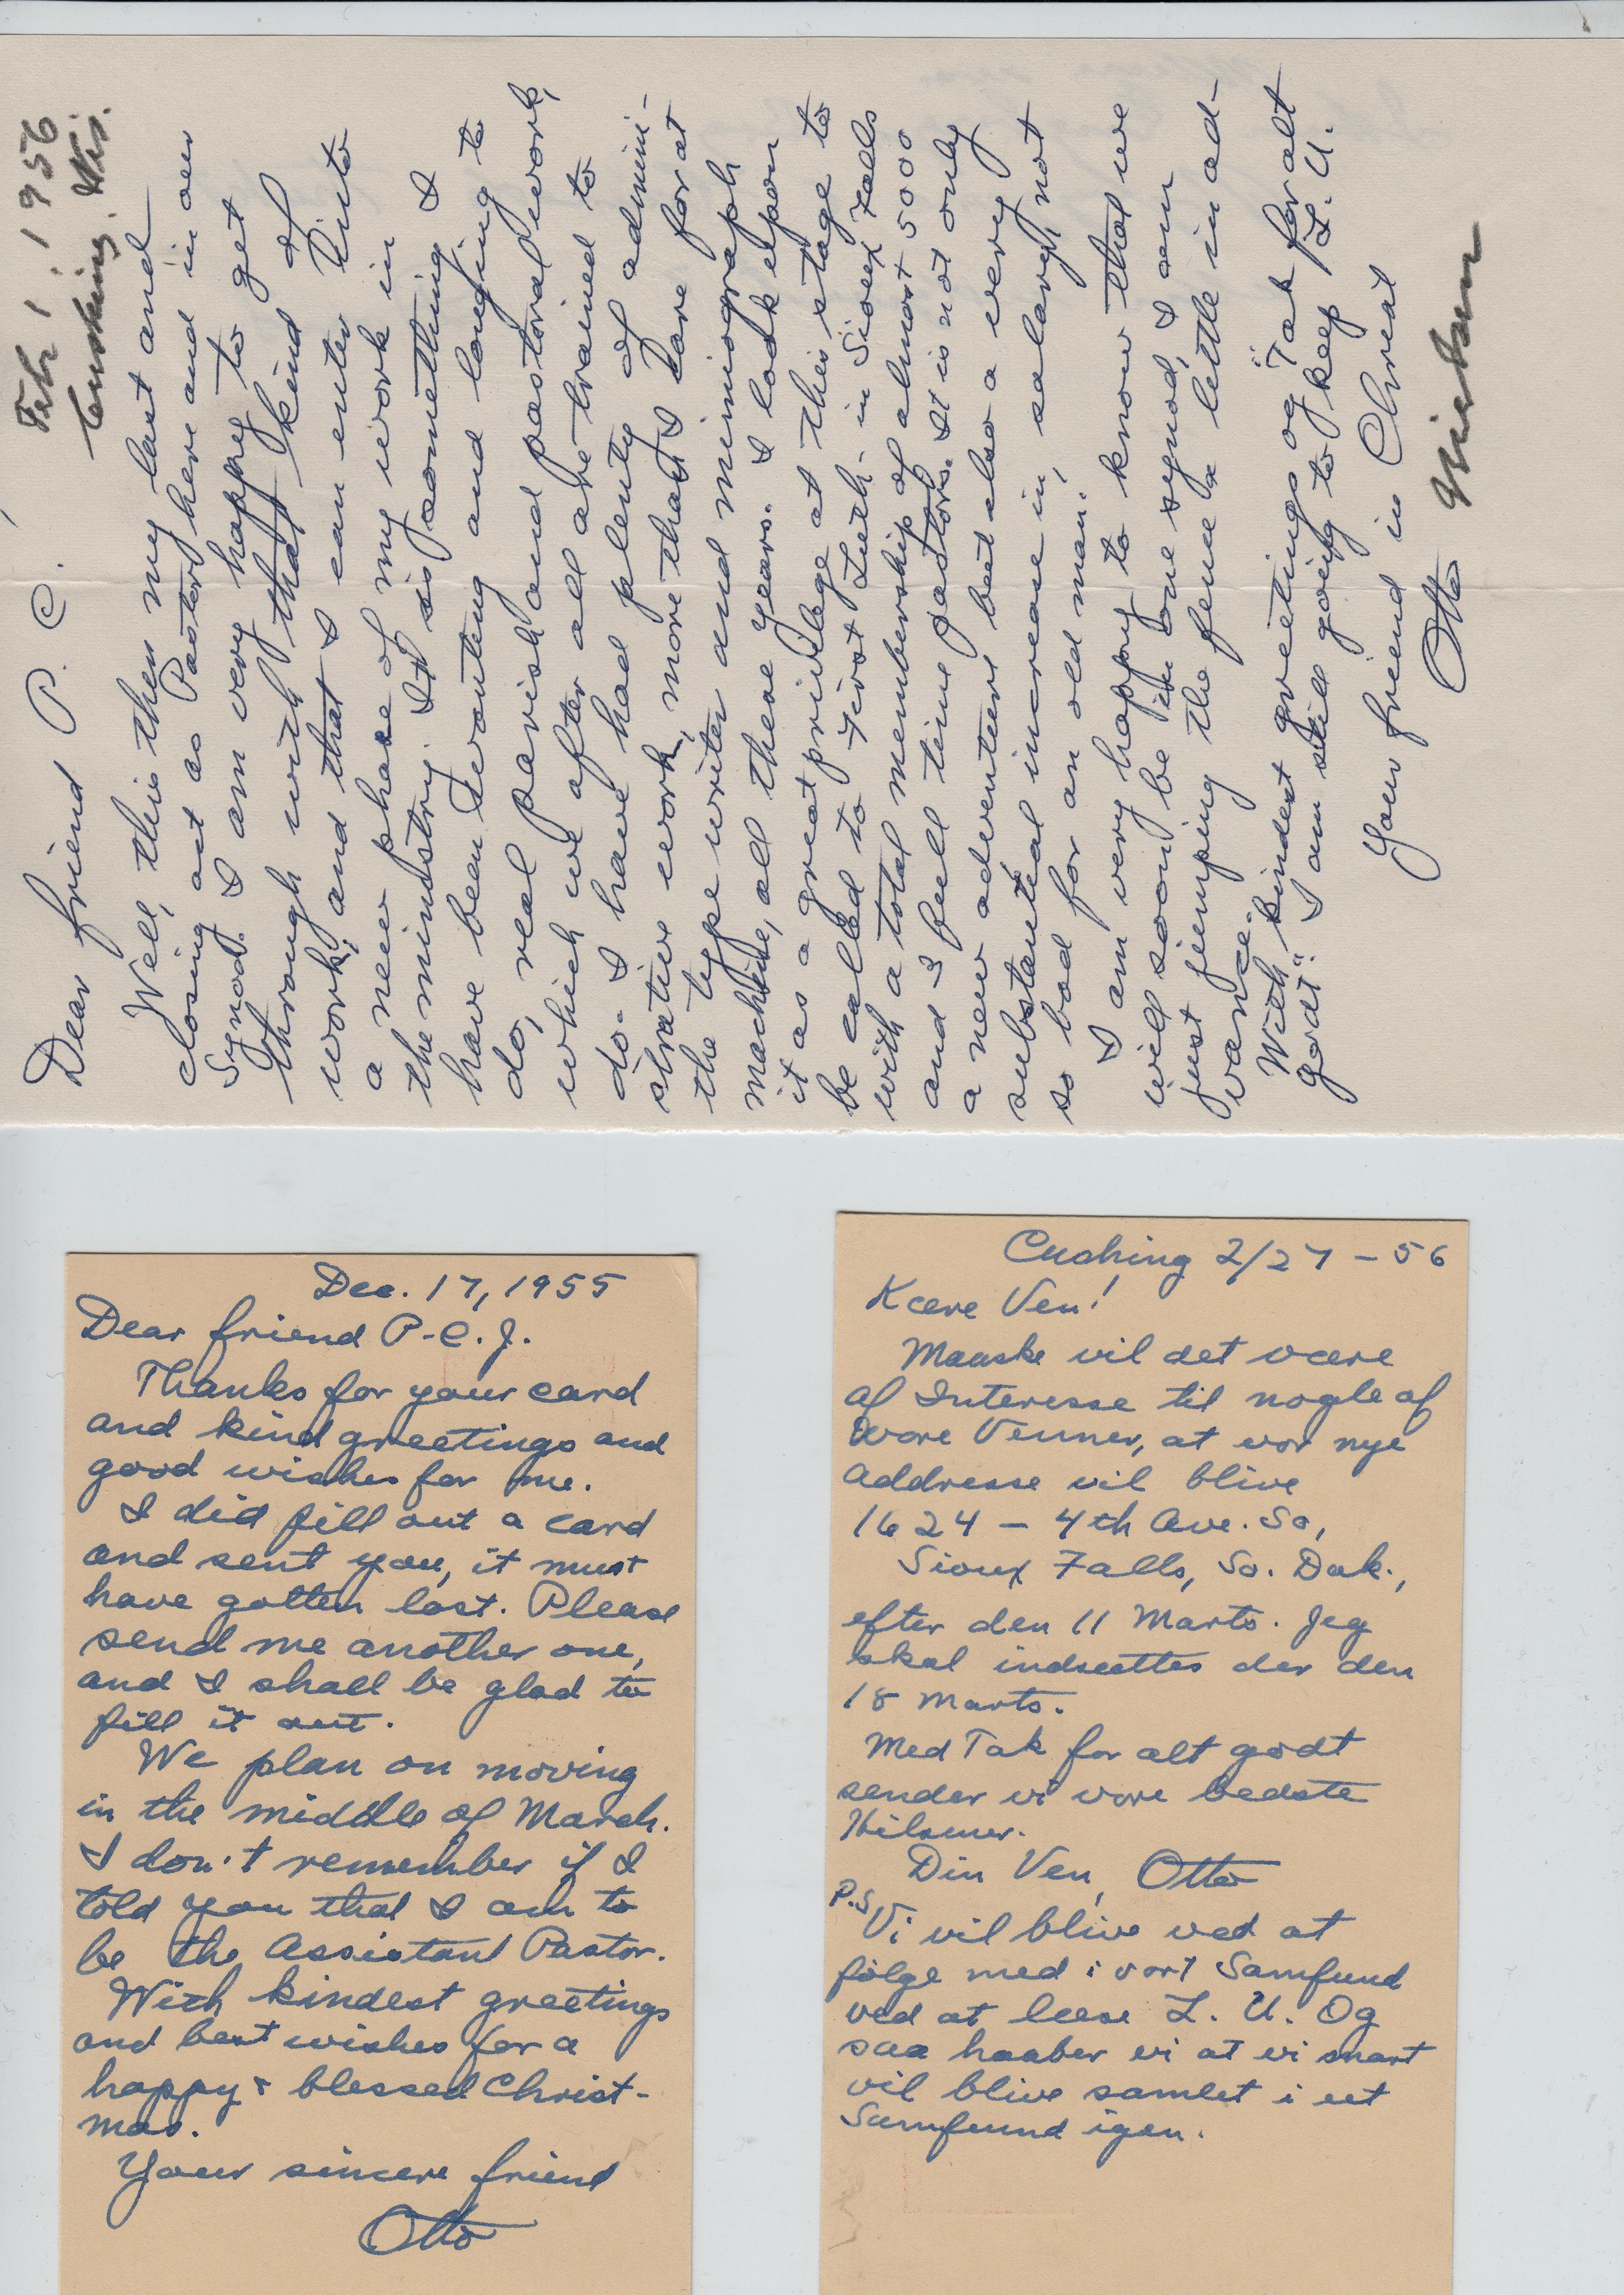 Feb. 1. 1956
Cushing. Wis.
Dear friend P. C.
Well, this then my last and
closing act as Pastor here and in our
Synod. I am very happy to get
through with that kind of
work, and that I can enter into
a new phase of my work in
the ministry. It is something I
have been wanting and longing to
do, real parish and pastoral work,
which we after all are trained to
do. I have had plenty of admini-
strative work, more than I care for at
the type writer and mimiograph
machine, all these years. I look upon
it as a great privilege at this stage to
be called to First Luth. in Sioux Falls
with a total membership of almost 5000
and 3 full time pastors. It is not only
a new adventure but also a very
substantial increase in salary, not
so bad for an old man!
I am very happy to know that we
will soon be in one synod, I am
just jumping the fence a little in ad-
vance.
With kindest greetings og "Tak for alt
godt". I am still going to keep L. U.
Your friend in Christ
Otto Nielsen
Dec. 17, 1955
Dear friend P. C. J.
Thanks for your card
and kind greetings and
good wishes for me.
I did fill out a card
and sent you, it must
have gotten lost. Please
send me another one,
and I shall be glad to
fill it out.
We plan on moving
in the middle of March.
I don't remember if I
told you that I am to
be the Assistant Pastor.
With kindest greetings
and best wishes for a
happy & blessed Christ-
mas.
Your sincere friend
Otto
Cushing 2/27 - 56
Kære Ven!
Maaske vil det være
af Interesse til nogle af
Vore Venner, at vor nye
Addresse vil blive
1624 - 4th Ave. So,
Sioux Falls, So. Dak.,
efter den 11 Marts. Jeg
skal indsættes der den
18 Marts.
Med Tak for alt godt
sender vi vore bedste
Hilsener.
Din Ven, Otto
P.S. Vi vil blive ved at
følge med i vort Samfund
ved at læse L. U. Og
saa haaber vi at vi snart
vil blive samlet i eet
Samfund igen.